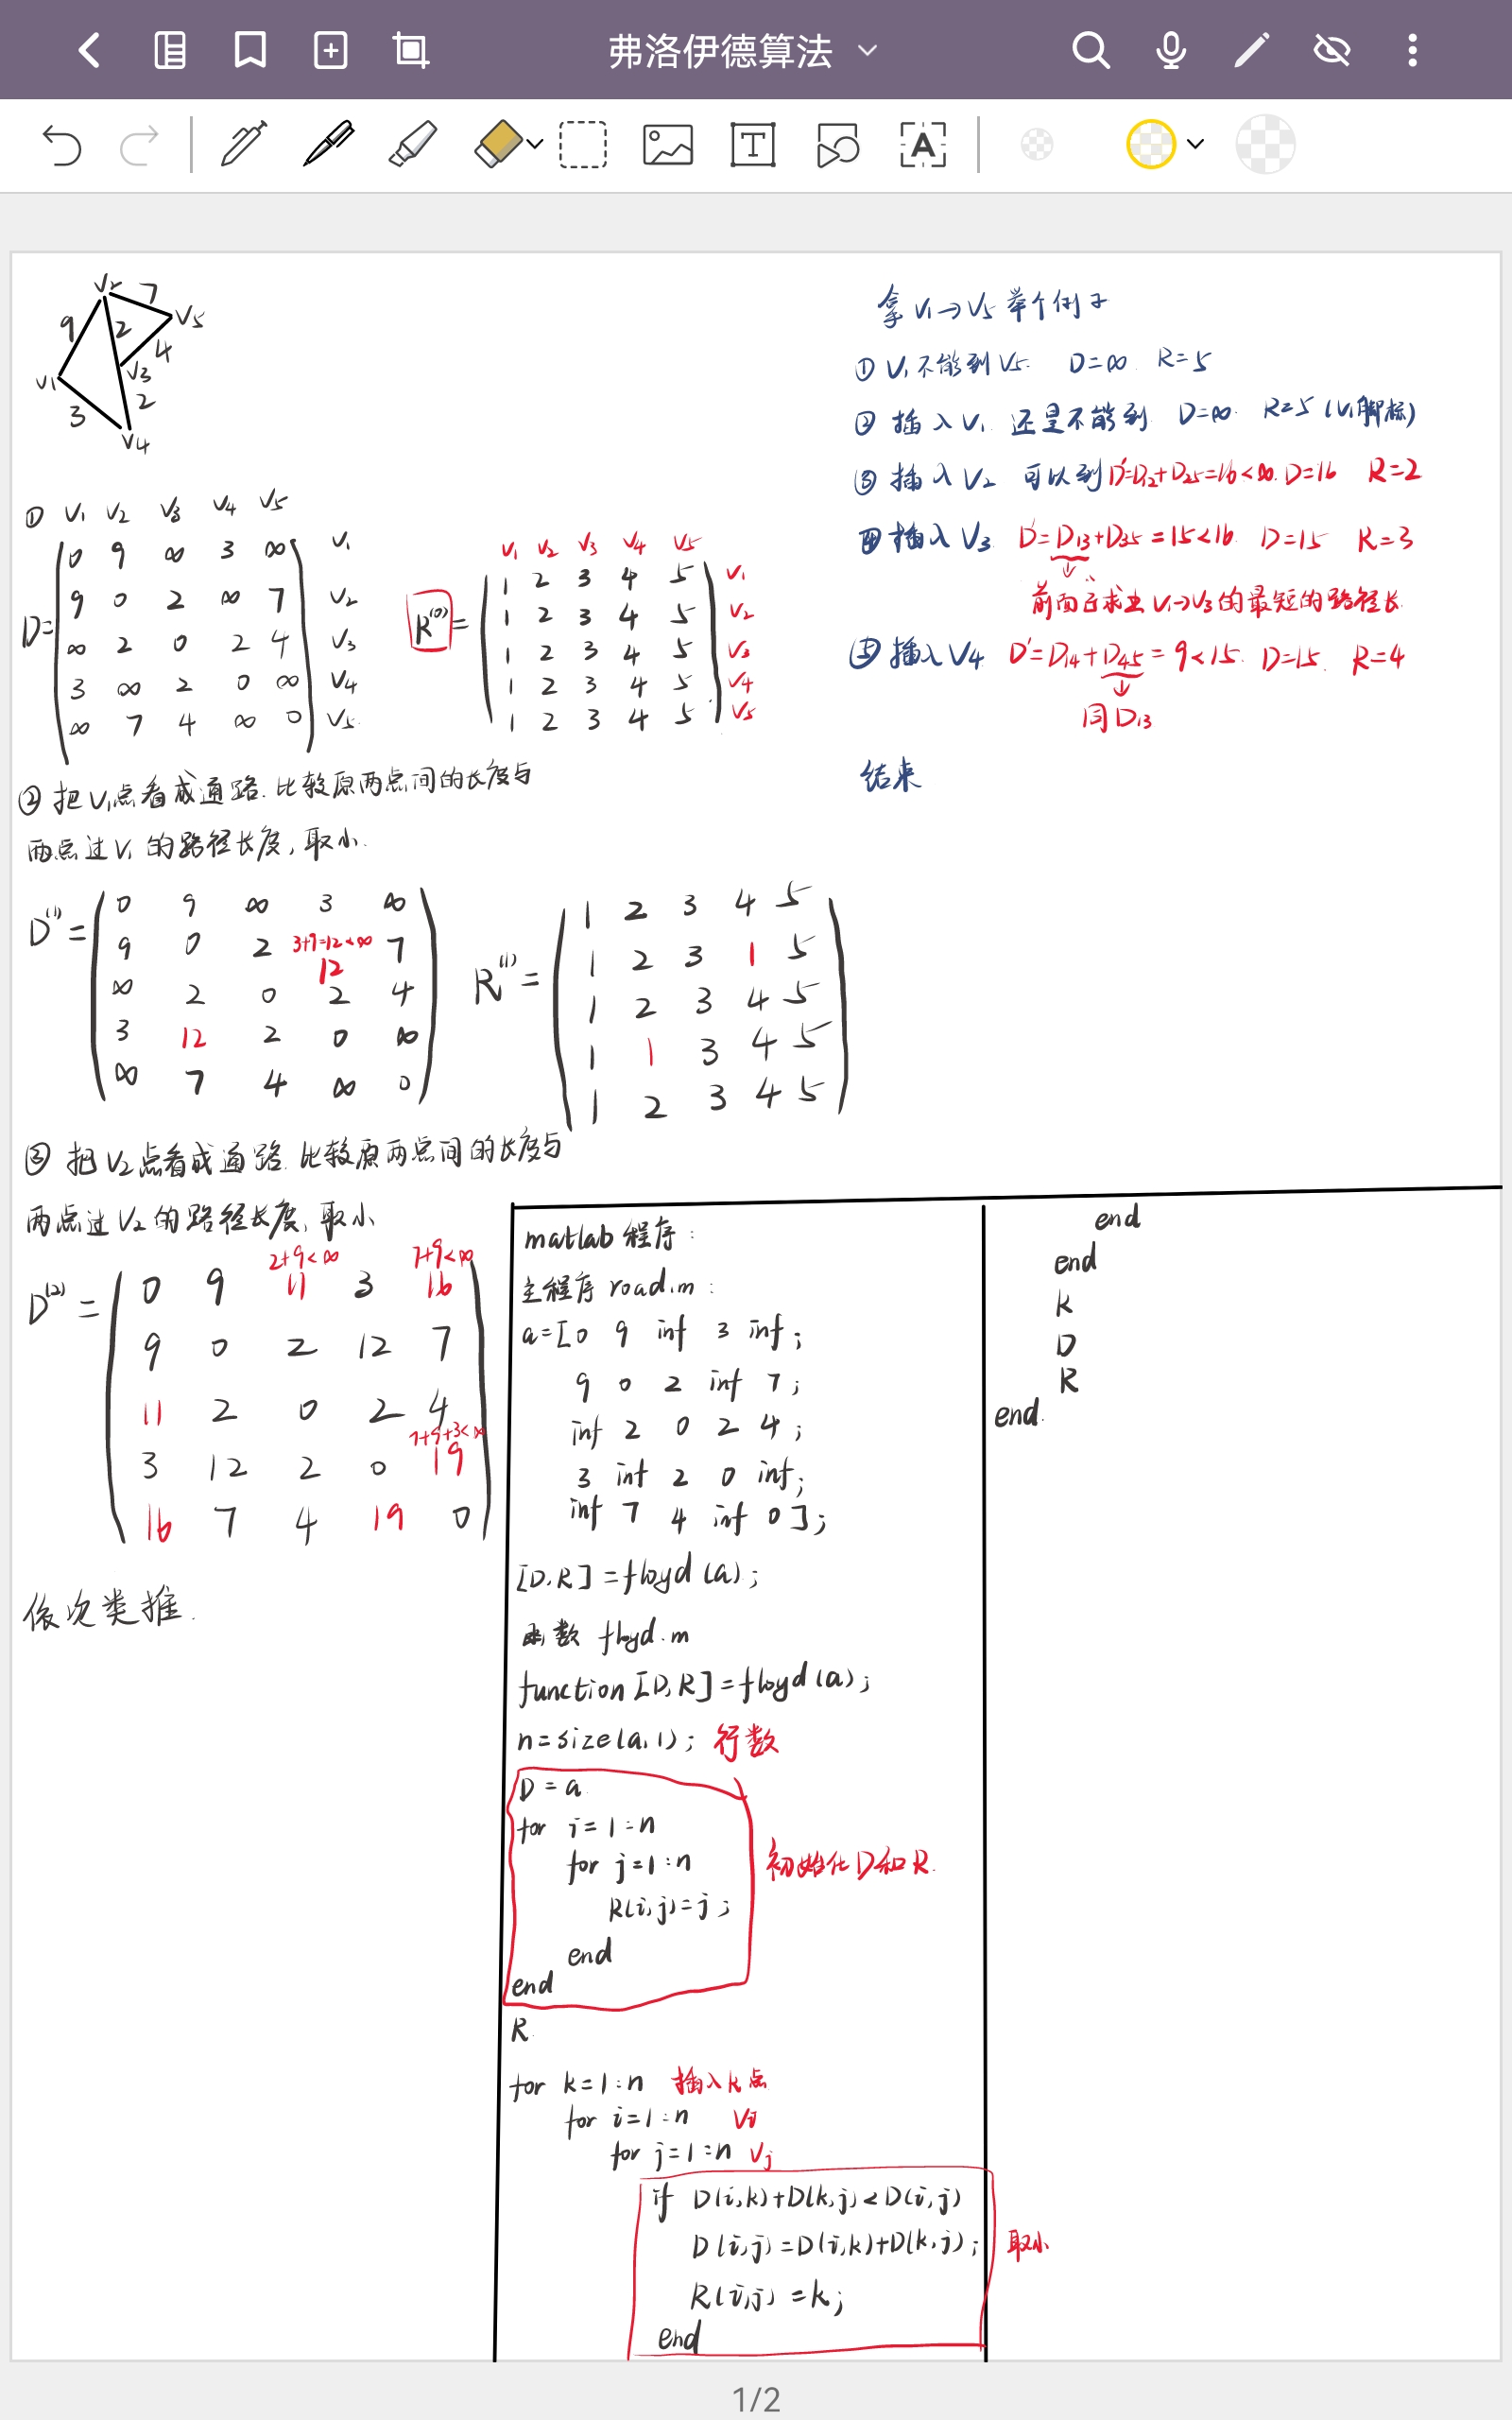 弗洛伊德算法
V₂
7
V₅
9
2
4
V₁
V₃
3
2
V₄
① V₁ V₂ V₃ V₄ V₅
0 9 ∞ 3 ∞ V₁
9 0 2 ∞ 7 V₂
D=
∞ 2 0 2 4 V₃
3 ∞ 2 0 ∞ V₄
∞ 7 4 ∞ 0 V₅
V₁ V₂ V₃ V₄ V₅
1 2 3 4 5 V₁
R⁽⁰⁾= 1 2 3 4 5 V₂
1 2 3 4 5 V₃
1 2 3 4 5 V₄
1 2 3 4 5 V₅
② 把V₁点看成通路.比较原两点间的长度与
两点过V₁的路径长度,取小.
D⁽¹⁾=
0 9 ∞ 3 ∞
9 0 2 3+9=12<∞ 12 7
∞ 2 0 2 4
3 12 2 0 ∞
∞ 7 4 ∞ 0
R⁽¹⁾=
1 2 3 4 5
1 2 3 1 5
1 2 3 4 5
1 1 3 4 5
1 2 3 4 5
③ 把V₂点看成通路.比较原两点间的长度与
两点过V₂的路径长度,取小
2+9<∞ 7+9<∞
D⁽²⁾= 0 9 11 3 16
9 0 2 12 7
11 2 0 2 4
7+9+3<∞
3 12 2 0 19
16 7 4 19 0
依次类推.
拿V₁→V₅举个例子
① V₁不能到V₅. D=∞. R=5
② 插入V₁. 还是不能到. D=∞. R=5 (V₁脚标)
③ 插入V₂ 可以到D'=D₁₂+D₂₅=16<∞. D=16 R=2
④ 插入V₃ D'=D₁₃+D₃₅=15<16. D=15 R=3
前面已求出V₁→V₃的最短的路径长
⑤ 插入V₄ D'=D₁₄+D₄₅=9<15. D=15. R=4
同D₁₃
结束
matlab程序:
主程序road.m:
a=[0 9 inf 3 inf;
9 0 2 inf 7;
inf 2 0 2 4;
3 inf 2 0 inf;
inf 7 4 inf 0];
[D,R]=floyd(a);
函数 floyd.m
function[D,R]=floyd(a);
n=size(a,1); 行数
D=a
for i=1:n
for j=1:n
R(i,j)=j;
end
end
初始化D和R.
R.
for k=1:n 插入k点
for i=1:n Vi
for j=1:n Vj
if D(i,k)+D(k,j)<D(i,j)
D(i,j)=D(i,k)+D(k,j);
R(i,j)=k;
end
取小
end
end
k
D
R
end.
1/2